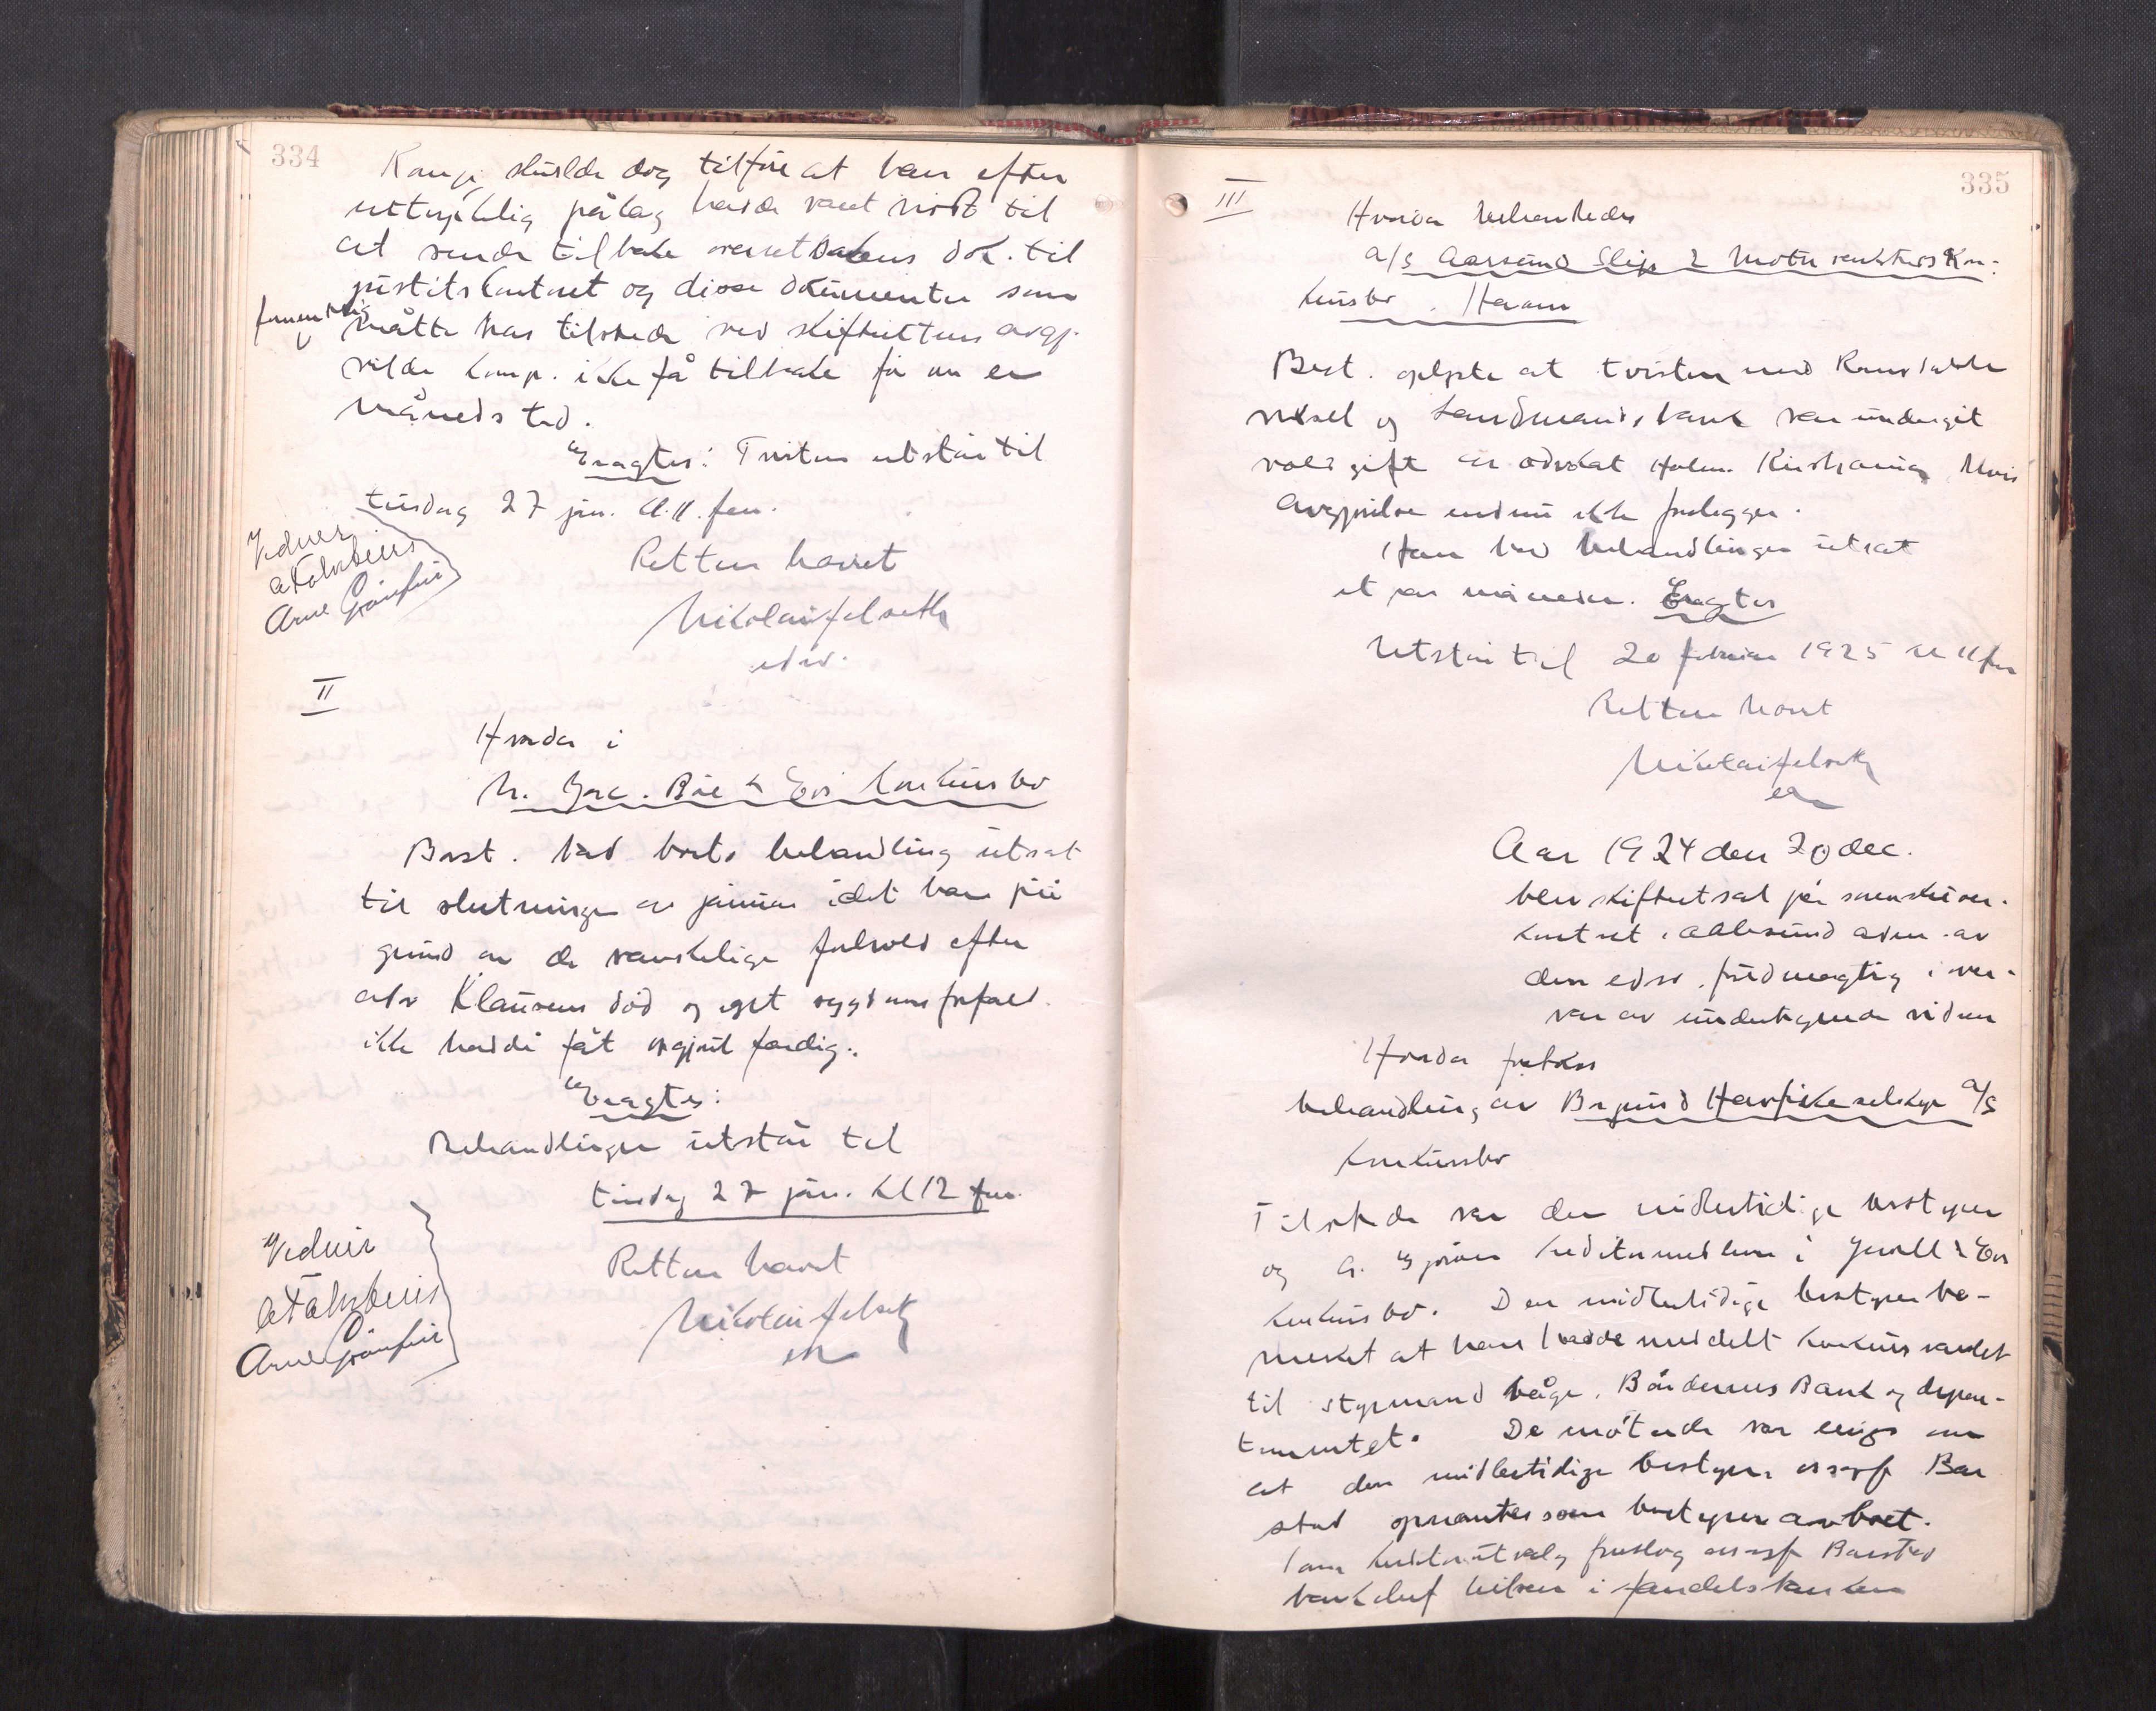 334
skulde dog tilføie at han efter
uttrykkelig pålæg hadde været nødt til
at sende tilbake dok. til
justitskontoret og disse dokumenter som
måtte has tilstede ved skifterettens avgj.
vilde komp. ikke få tilbake før om en
måneds tid.
Eragtes: Tvisten utstår til
tirsdag 27 jan. kl. 11 fm.
Vidner
Retten hævet
Nikolai Helseth
edsv.
II
Hvorda i
& Søn konkursbo
Best. bad boets behandling utsat
til slutningen av januar idet han på
grund av de vanskelige forhold efter
adv Klausens død og eget sygdomsforfald
ikke hadde fåt opgjøret færdig.
Eragtes:
Behandlingen utstår til
tirsdag 27 jan. kl 12 fm.
Retten hævet
Vidner
Nikolai Helseth
335
III
Hvorda behandledes
a/s Aarsund Slip & Motorverksteds Kon-
kursbo. Haram
Best. oplyste at tvisten med
og Landmandsbank var undergit
voldgift av advokat Holm. hvis
avgjørelse endnu ikke foreligger.
Han bad behandlingen utsat
et par måneder. Eragtes
Utstår til 20 februar 1925 kl 11 fm
Retten hævet
Nikolai Helseth
Aar 1924 den 20 dec.
blev skifteret sat på sorenskriver-
kontoret i Aalesund adm. av
den edsv. fuldmægtig i over-
vær av undertegnede vidner
Hvorda foretokes
behandling av Havfiskeselskap a/s
konkursbo
Tilstede var den midlertidige bestyrer
og kreditormedlem i & Søn
konkursbo. Den midlertidige bestyrer be-
merket at han hadde meddelt konkursvarslet
til styrmand Våge, Bøndernes Bank og depar-
tementet. De møtende var enige om
at den midlertidige bestyrer Bar
stad opnævntes som bestyrer av boet.
Som kreditorutvalg foreslog Barstad
banksjef Nilsen i Handelsbanken